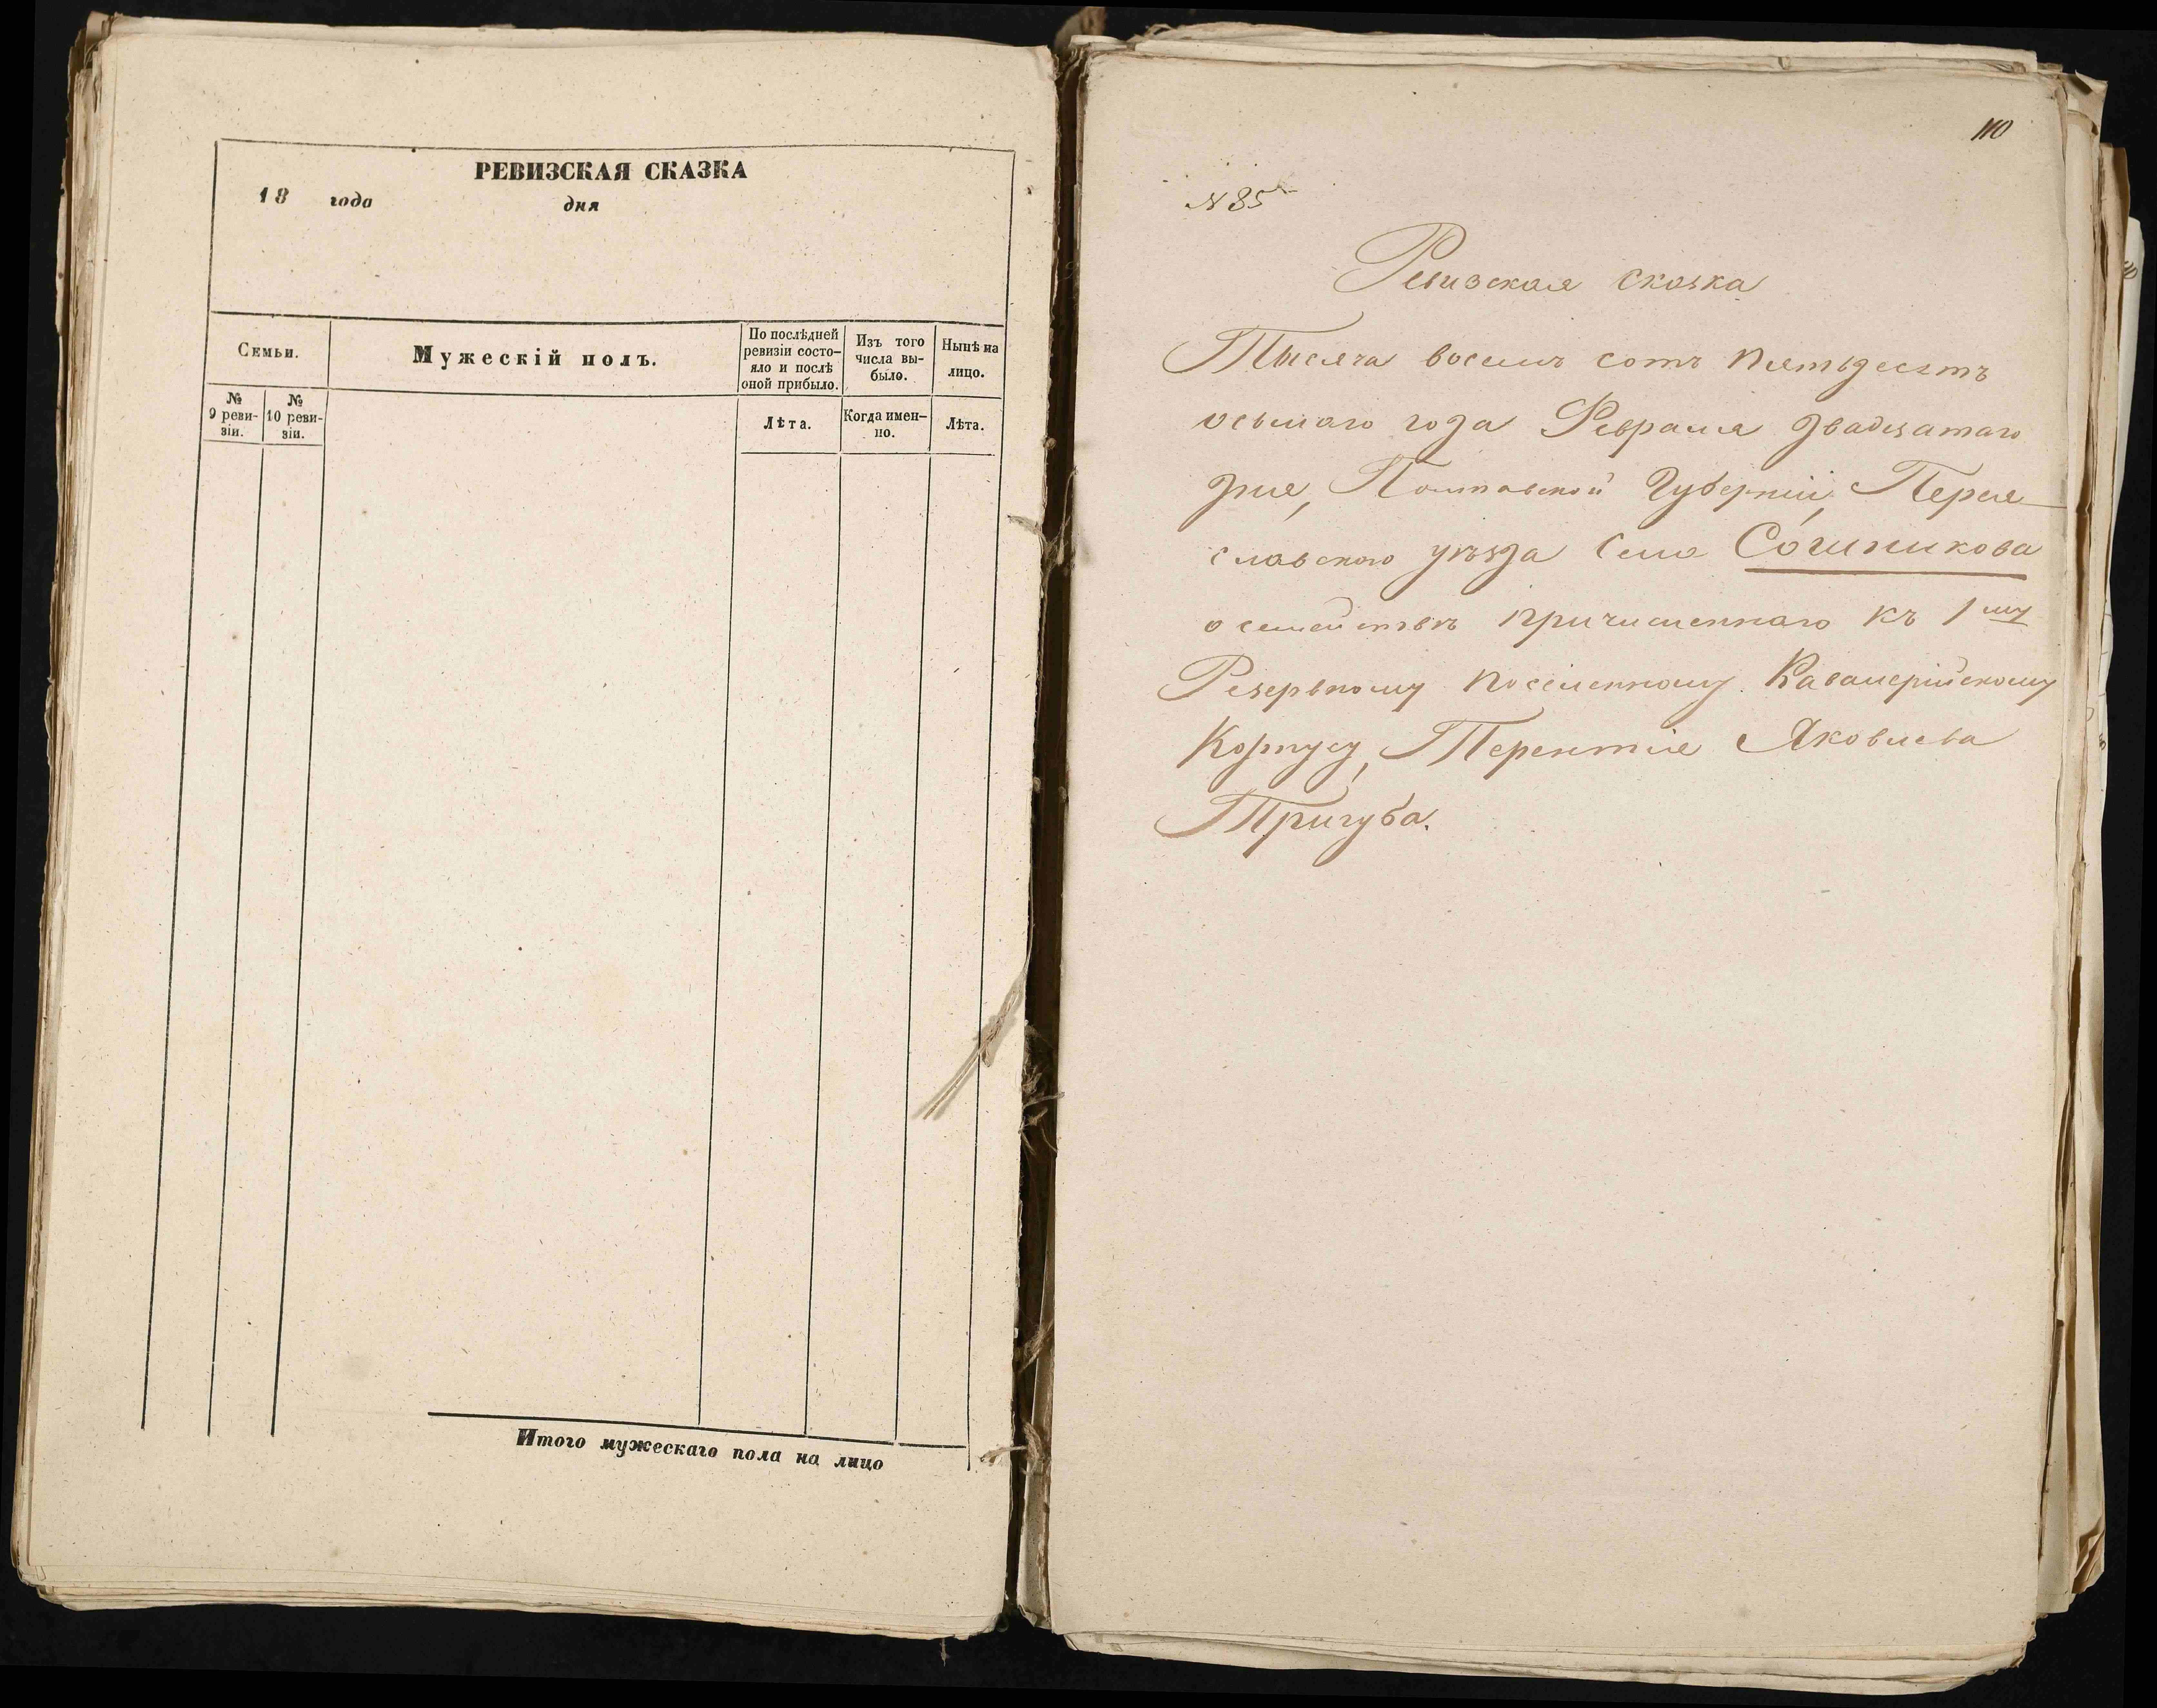 РЕВИЗСКАЯ СКАЗКА
18 года дня
Семьи.
№ 9 реви-зіи.
№ 10 реви-зіи.
Мужескій полъ.
По послѣдней
ревизіи состо-
яло и послѣ
оной прибыло.
Лѣта.
Изъ того
числа вы-
было.
Когда имен-
но.
Нынѣ на
лицо.
Лѣта.
Итого мужескаго пола на лицо
110
№ 85
Ревизская сказка
Тысяча восемъ сотъ пятьдесятъ
осьмаго года Февраля двадцатаго
дня, Полтавской Губерніи, Перея-
славского уѣзда села Сошникова
о семействѣ причисленнаго къ 1му
Резервному поселенному Кавалерійскому
Корпусу, Терентія Яковлева
Тригуба.